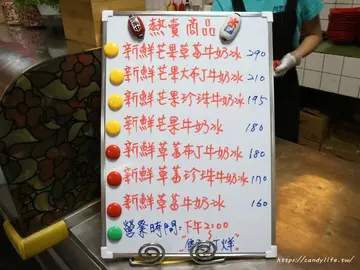 熱賣商品
新鮮芒果草莓牛奶冰 290
新鮮芒果布丁牛奶冰 210
新鮮芒果珍珠牛奶冰 195
新鮮芒果牛奶冰 180
新鮮草莓布丁牛奶冰 180
新鮮草莓珍珠牛奶冰 170
新鮮草莓牛奶冰 160
營業時間:下午2:00
打烊
https://candylife.tw/